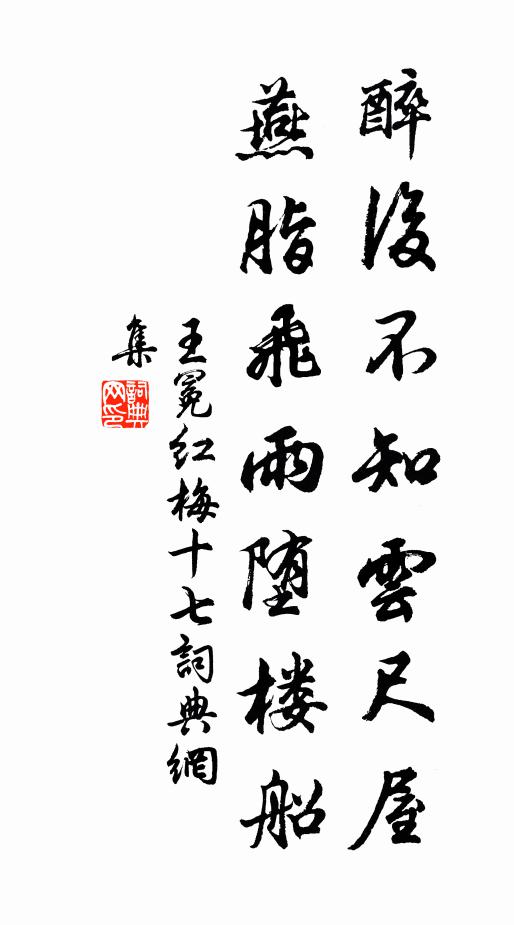 醉後不知雲尺屋
燕脂飛雨堕楼船
王冕紅梅十七詞典網
集
詞典网印